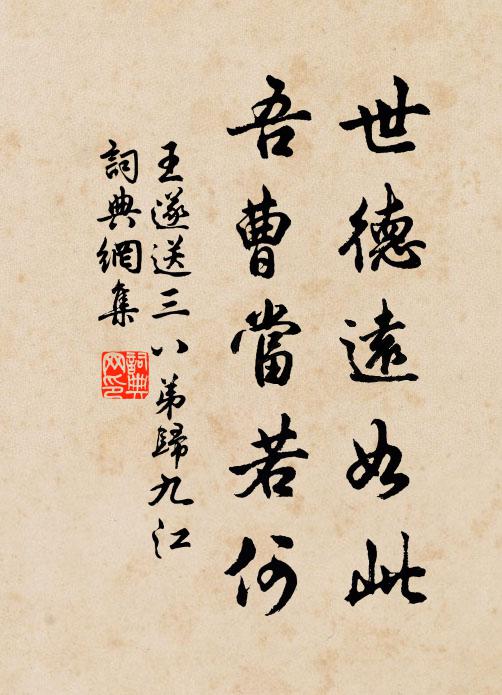 世德遠如此
吾曹當若何
王遂送三八弟歸九江
詞典網集
詞典网印